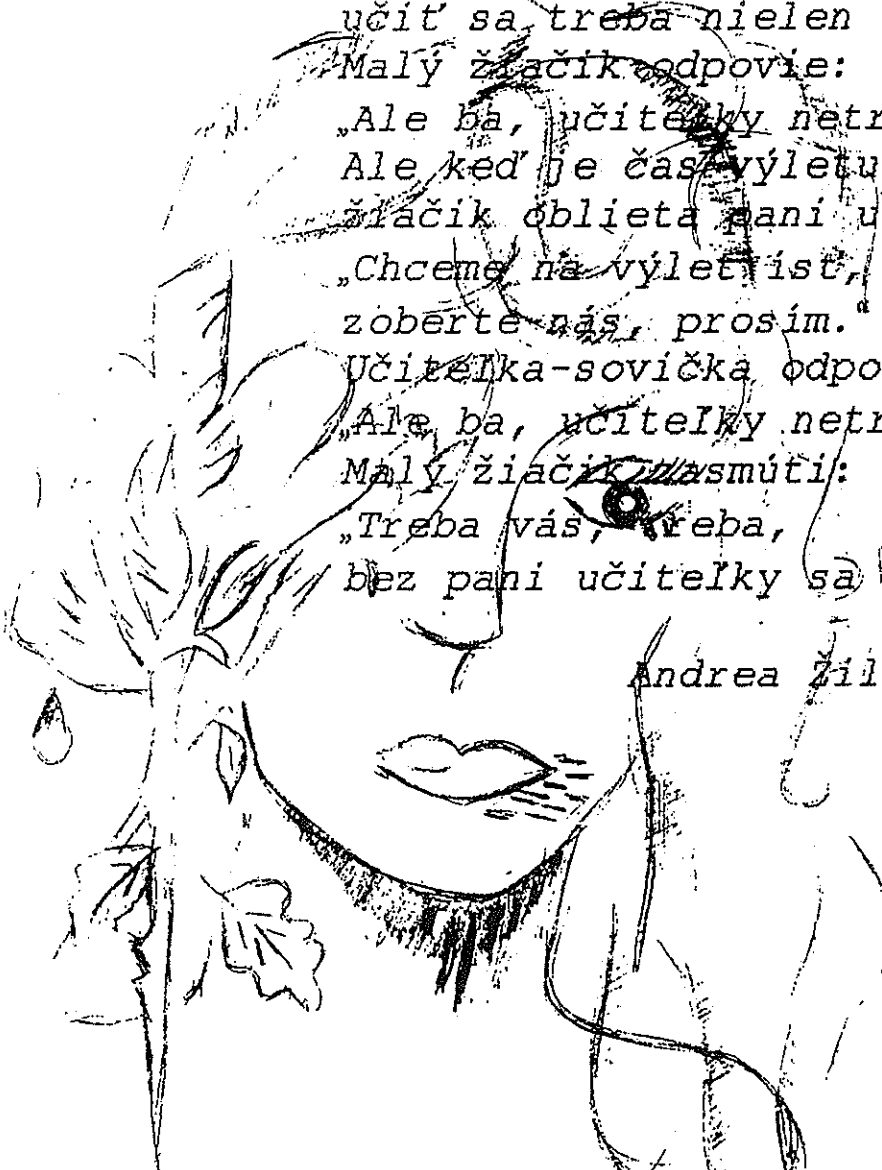 učiť sa treba nielen
Malý žiačik odpovie:
„Ale ba, učiteľky netr
Ale keď je čas výletu
žiačik oblieta pani u
„Chceme na výlet ísť,
zoberte nás, prosím."
Učiteľka-sovička odpo
„Ale ba, učiteľky netr
Malý žiačik zasmúti:
„Treba vás, treba,
bez pani učiteľky sa
Andrea Žil